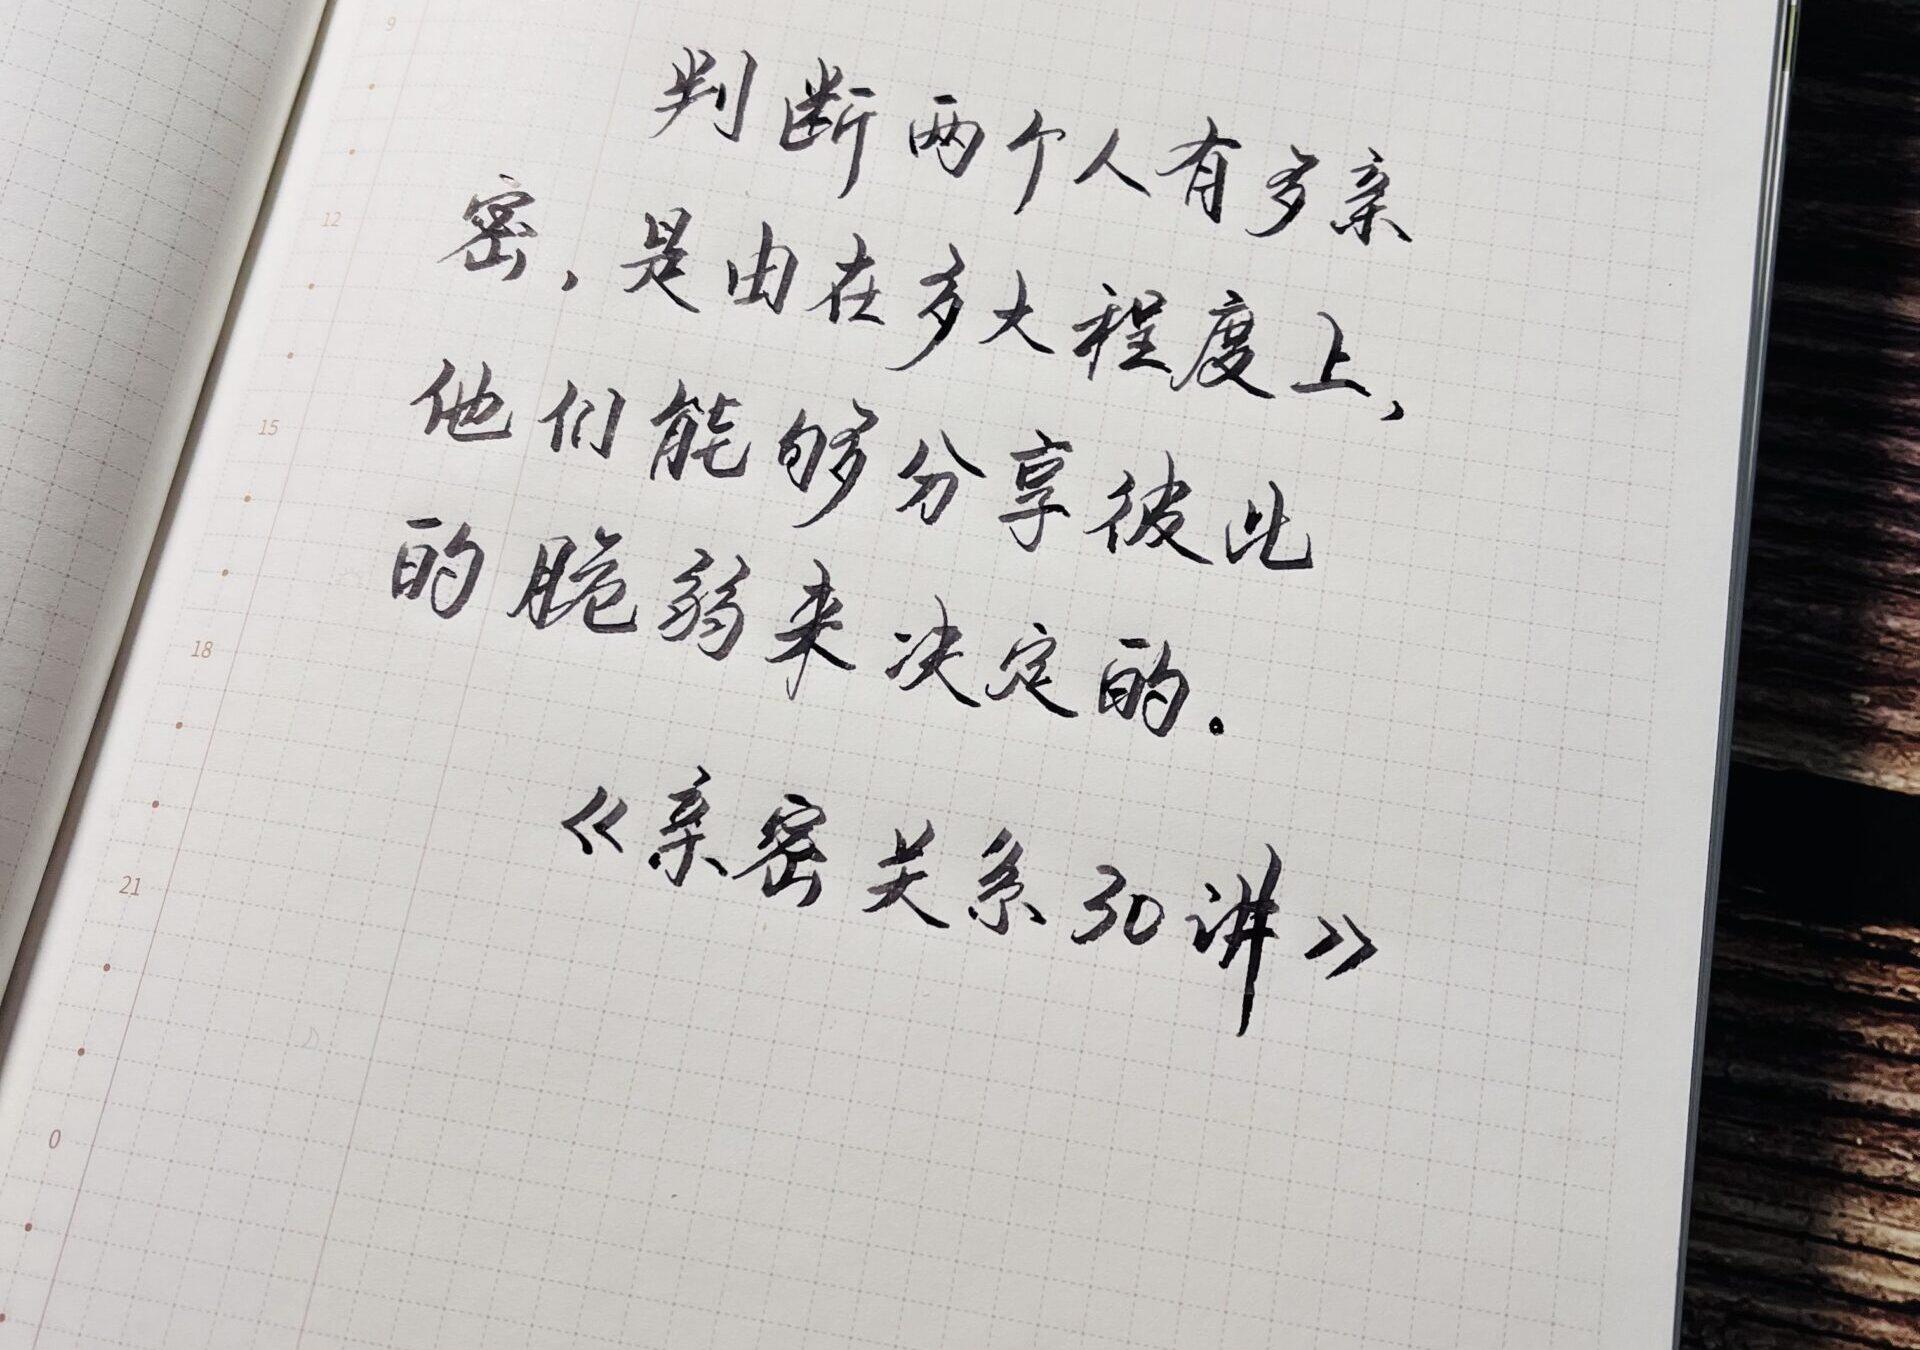 9
判断两个人有多亲
12
密，是由在多大程度上，
15
他们能够分享彼此
的脆弱来决定的.
18
《亲密关系30讲》
21
0